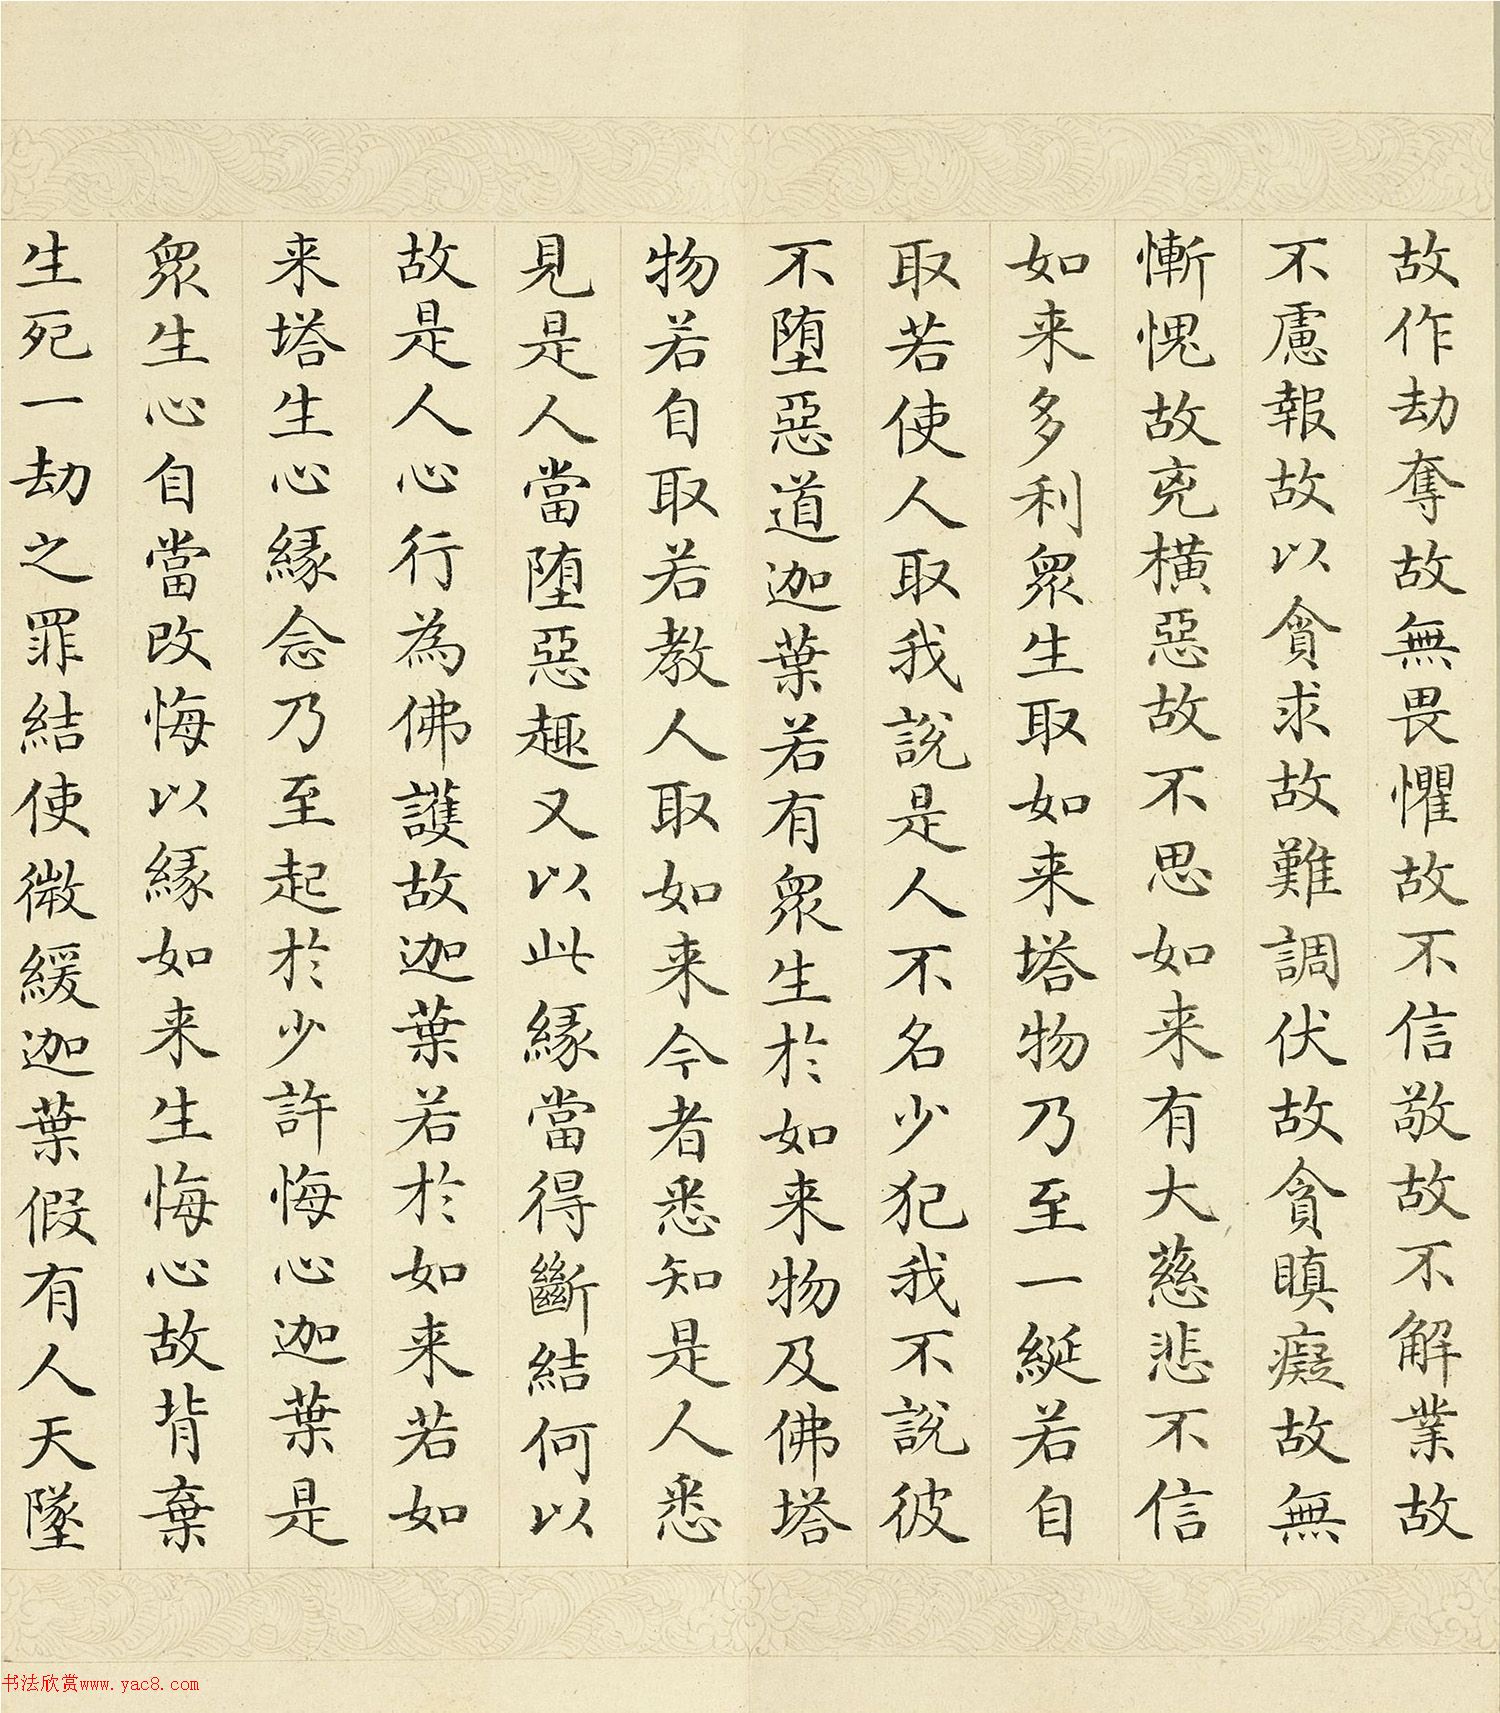 故作劫奪故無畏懼故不信敬故不解業故
不慮報故以貪求故難調伏故貪瞋癡故無
慚愧故兇橫惡故不思如来有大慈悲不信
如来多利眾生取如来塔物乃至一綖若自
取若使人取我說是人不名少犯我不說彼
不墮惡道迦葉若有眾生於如来物及佛塔
物若自取若教人取如来今者悉知是人悉
見是人當墮惡趣又以此緣當得斷結何以
故是人心行為佛護故迦葉若於如来若如
来塔生心緣念乃至起於少許悔心迦葉是
眾生心自當改悔以緣如来生悔心故背棄
生死一劫之罪結使微緩迦葉假有人天墜
书法欣赏www.yac8.com